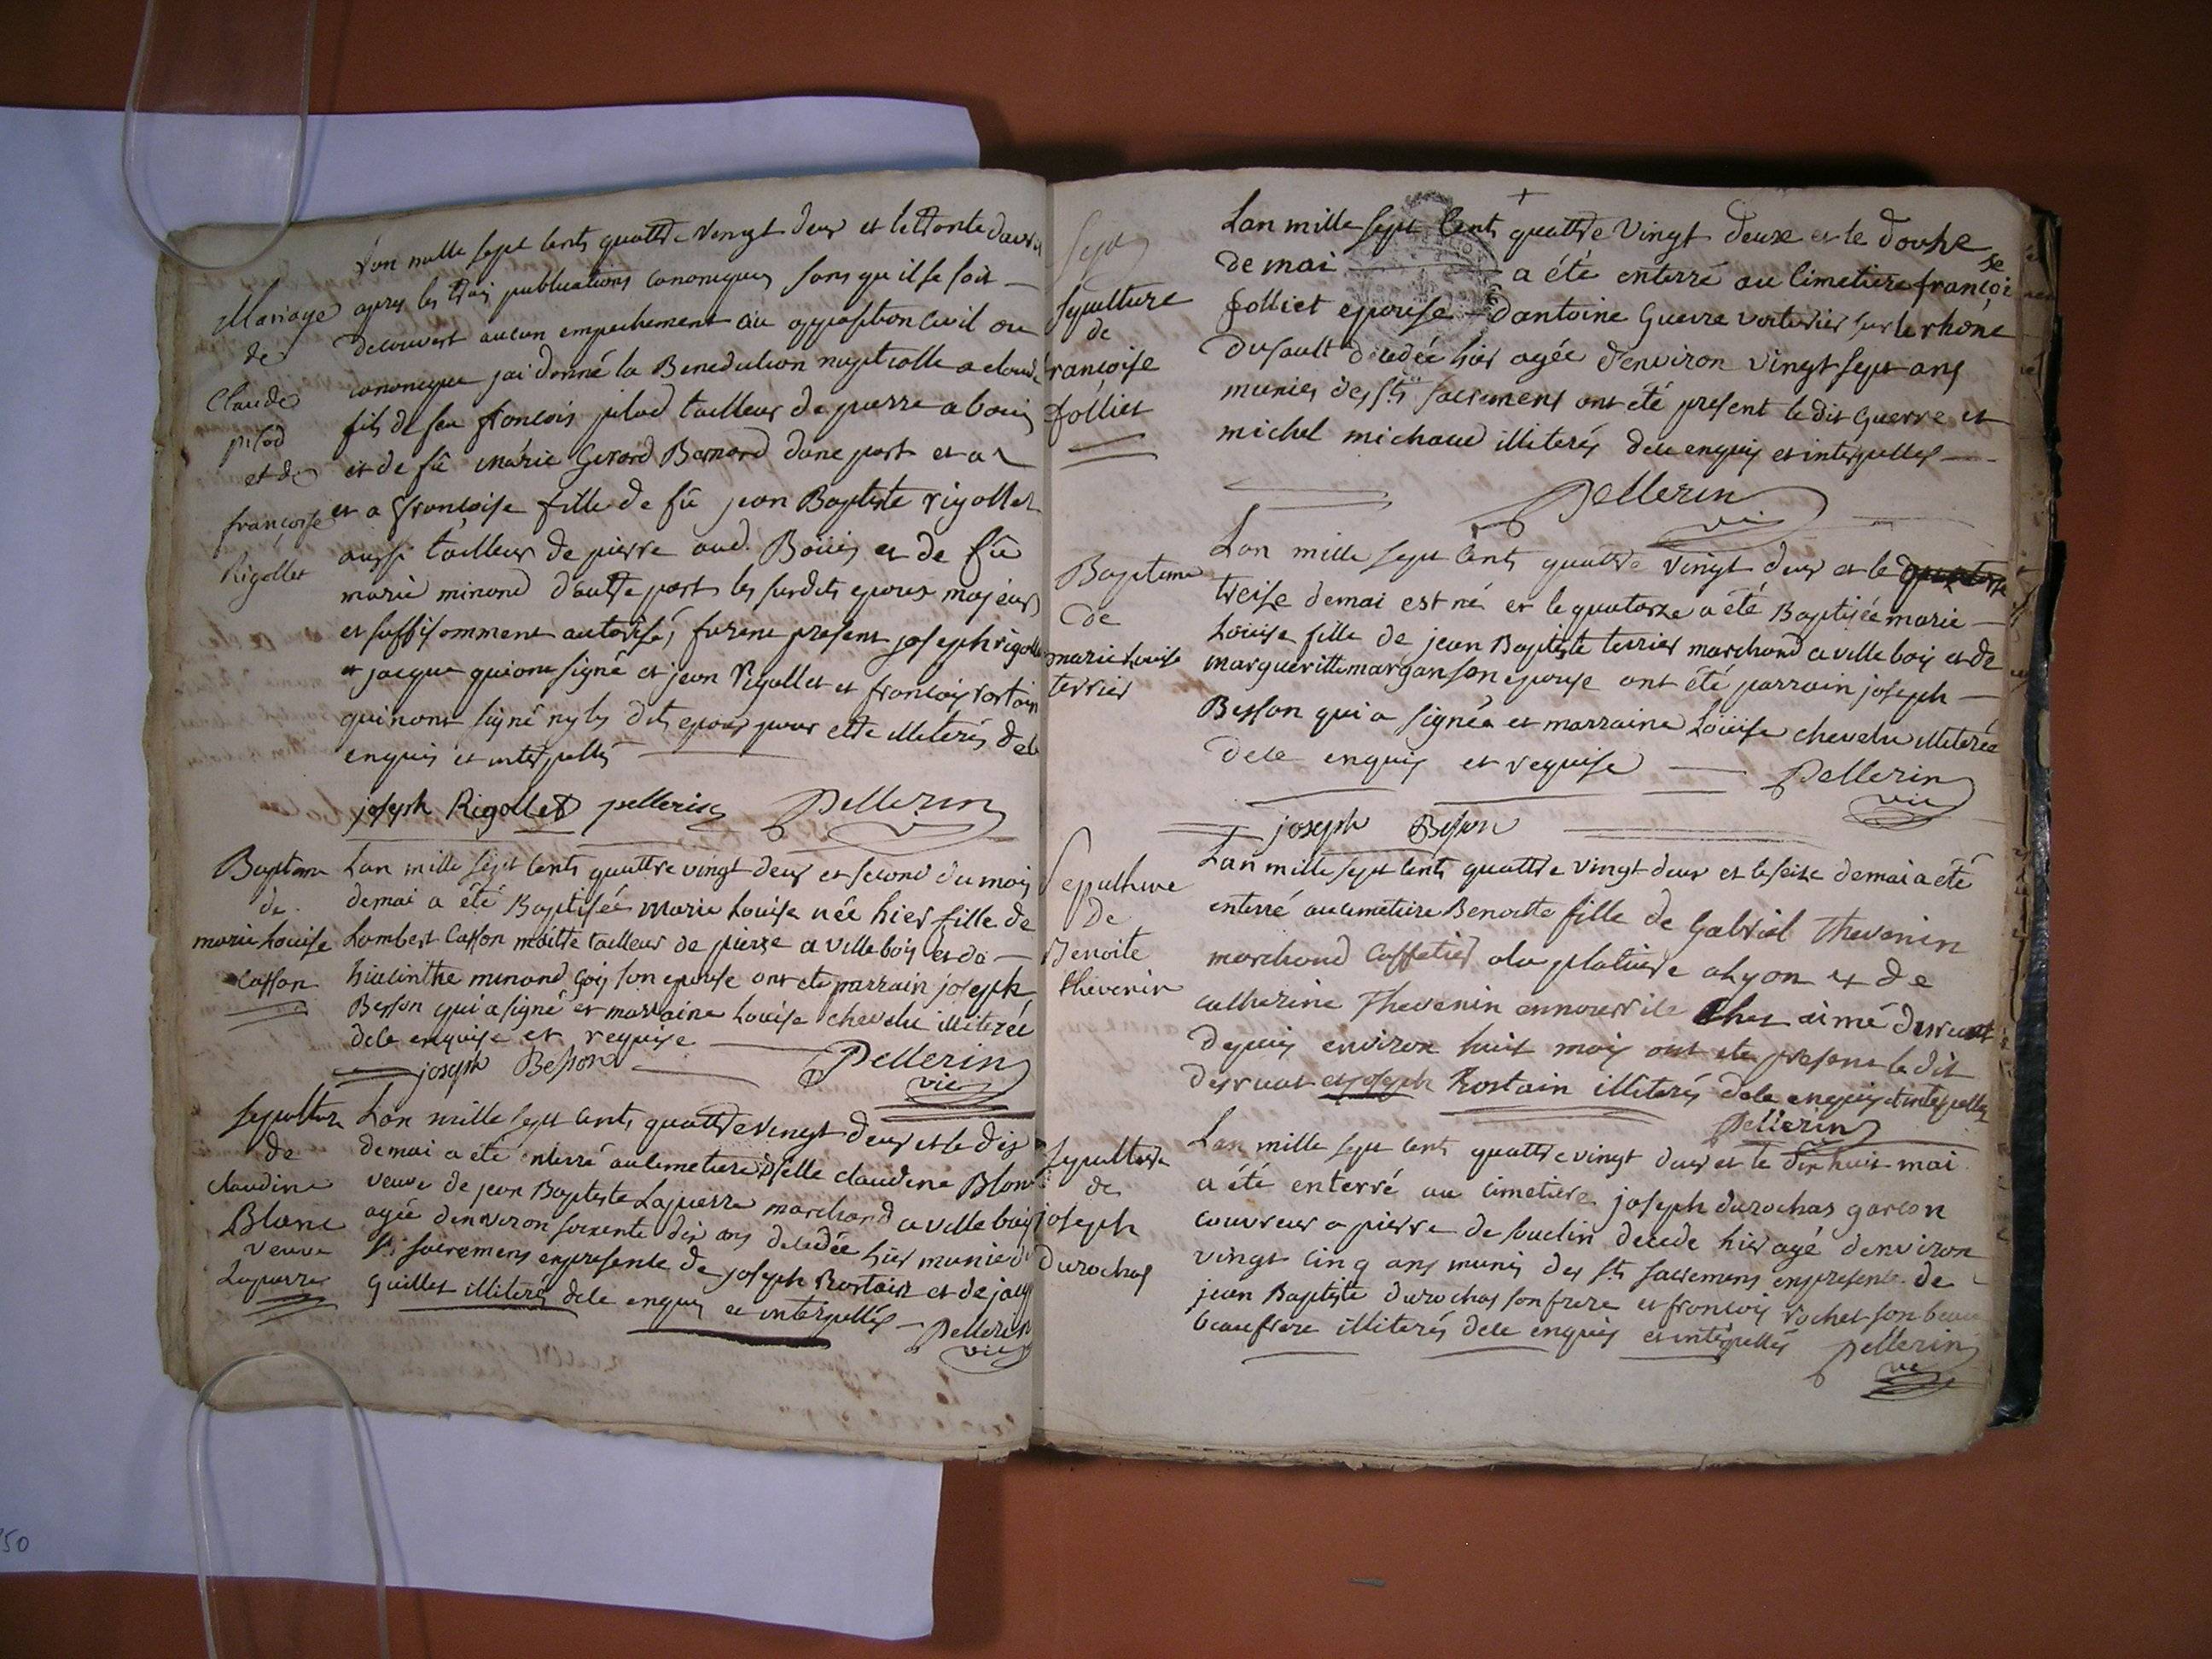 Lan mille sept cents quattre vingt deux et le trente davril
Mariage
de
Claude
pilod
et de
françoise
Rigollet
apres les trois publications canoniques sans qu il se soit
decouvert aucun empechement ou opposition civil ou
canonique jai donné la Benediction nuptialle a claude
fils de feu francois pilod tailleur de pierre a bouis
et de fû marie Gerard Barnard dune part et a
et a françoise fille de fû jean Baptiste rigollet
aussi tailleur de pierre aud. Boüis et de fû
marie minand d'autre part les susdits epoux majeurs
et suffisamment autorisés, furent present joseph rigollet
et jacque qui ont signé et jean Rigollet et francois rostain
qui nont signé ny les dits epoux pour etre illiterés de le
enquis et interpellés
joseph Rigollet pellerin Pellerin
Bapteme
de
marie Louise
Casson
Lan mille sept cents quattre vingt deux et second du mois
de mai a été Baptisée marie Louise née hier fille de
Lambert Casson maitre tailleur de pierre a villebois et de
hiacinthe minand son epouse ont ete parrain joseph
Besson qui a signé et marraine Louise chevelu illiterée
dele enquise et requise
joseph Besson Pellerin
vic
sepulture
de
claudine
Blanc
veuve
Lapierre
Lan mille sept cents quattre vingt deux et le dix
de mai a été enterré au cimetiere delle claudine Blanc
veuve de jean Baptiste Lapierre marchand a villebois
agée denviron soixente dix ans decedée hier munie des
sts sacremens en presente de joseph Rostain et de jacq
quillet illiterés dele enquis et interpellés Pellerin
vic
Sept
Sepulture
de
francoise
folliet
Lan mille sept Cents quattre vingt deux et le douze
de mai a été enterré au Cimetiere françoise
folliet epouse dantoine Guerre voiturier sur le rhone
du sault decedée hier agée denviron vingt sept ans
munies des sts sacrement ont été present le dit Guerre et
michel michaud illiterés dele enquis et interpellés
Pellerin
vic
Bapteme
de
marie Louise
terrier
Lan mille sept Cents quattre vingt deux et le quatorze
treise de mai est né et le quatorze a été Baptisée marie
Loüise fille de jean Baptiste terrier marchand a villebois et de
margueritte margan son epouse ont été parrain joseph
Besson qui a signé et marraine Loüise chevelu illiterée
dele enquis et requise Pellerin
vic
joseph Besson
Sepulture
de
Benoite
thevenin
Lan mille sept cents quattre vingt deux et le seize de mai a été
enterré au cimetiere Benoitte fille de Gabriel Thevenin
marchand Caffetier a la platiere a Lyon et de
catherine Thevenin en nourrice Chez aimé derruat
depuis environ huit mois ont ete present le dit
derruat et joseph Rostain illiterés dele enquis et interpellés
Pellerin
Sepulture
de
joseph
Durochas
Lan mille sept cents quattre vingt deux et le dix huit mai
a été enterré au cimetiere joseph durochas garcon
couvreur a pierre de souclin decede hier agé denviron
vingt cinq ans munis des sts sacremens en presente de
jean Baptiste durochas son frere et francois rochet son beau
beaufrere illiterés dele enquis et interpellés Pellerin
vic
50